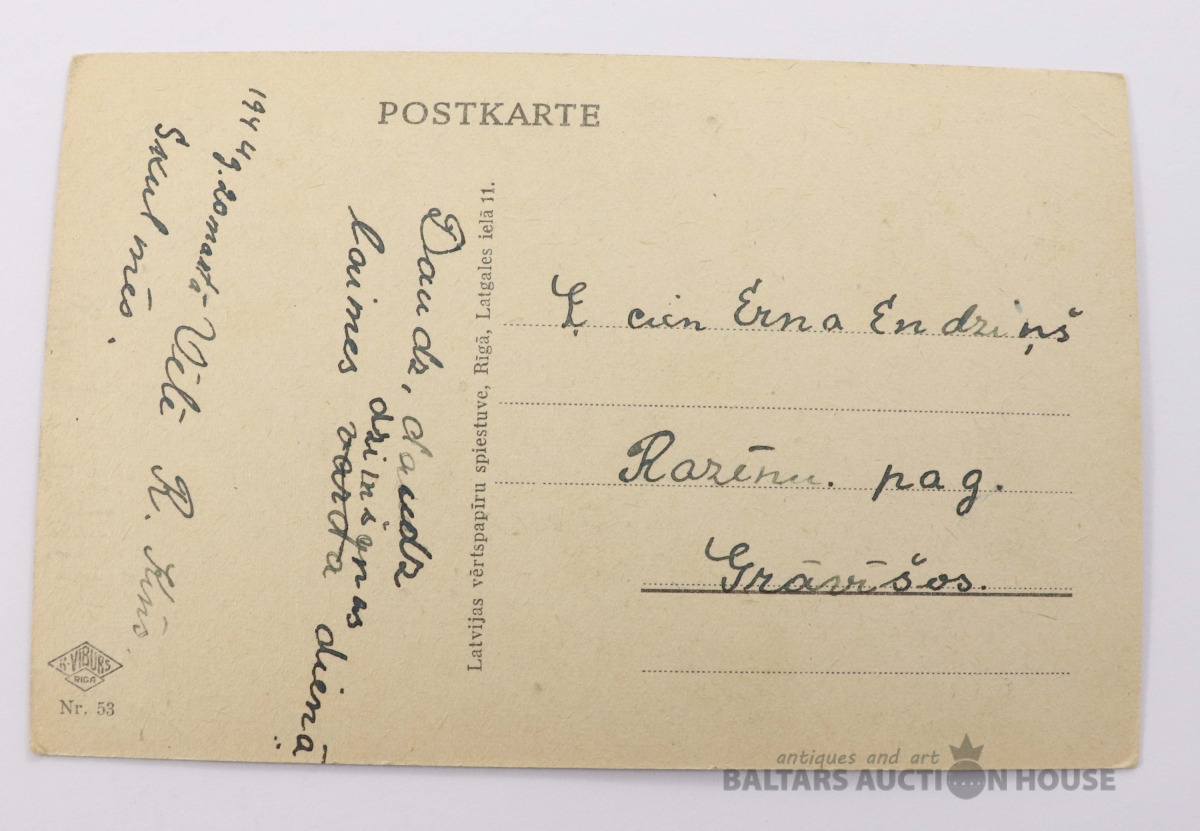 POSTKARTE
Daudz, daudz
laimes dzimšanas
varda dienā
Vēlē R. Ķiņš
1944 g. 20 martā
Skulmēs.
Latvijas vērtspapīru spiestuve, Rīgā, Latgales ielā 11.
Ļ cien Erna Endziņš
Kazēnu. pag.
Grāvīšos.
K. VIBURS
RIGA
Nr. 53
antiques and art
BALTARS AUCTION HOUSE